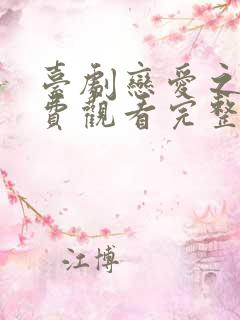 臺劇戀愛之
費觀看完整
江博